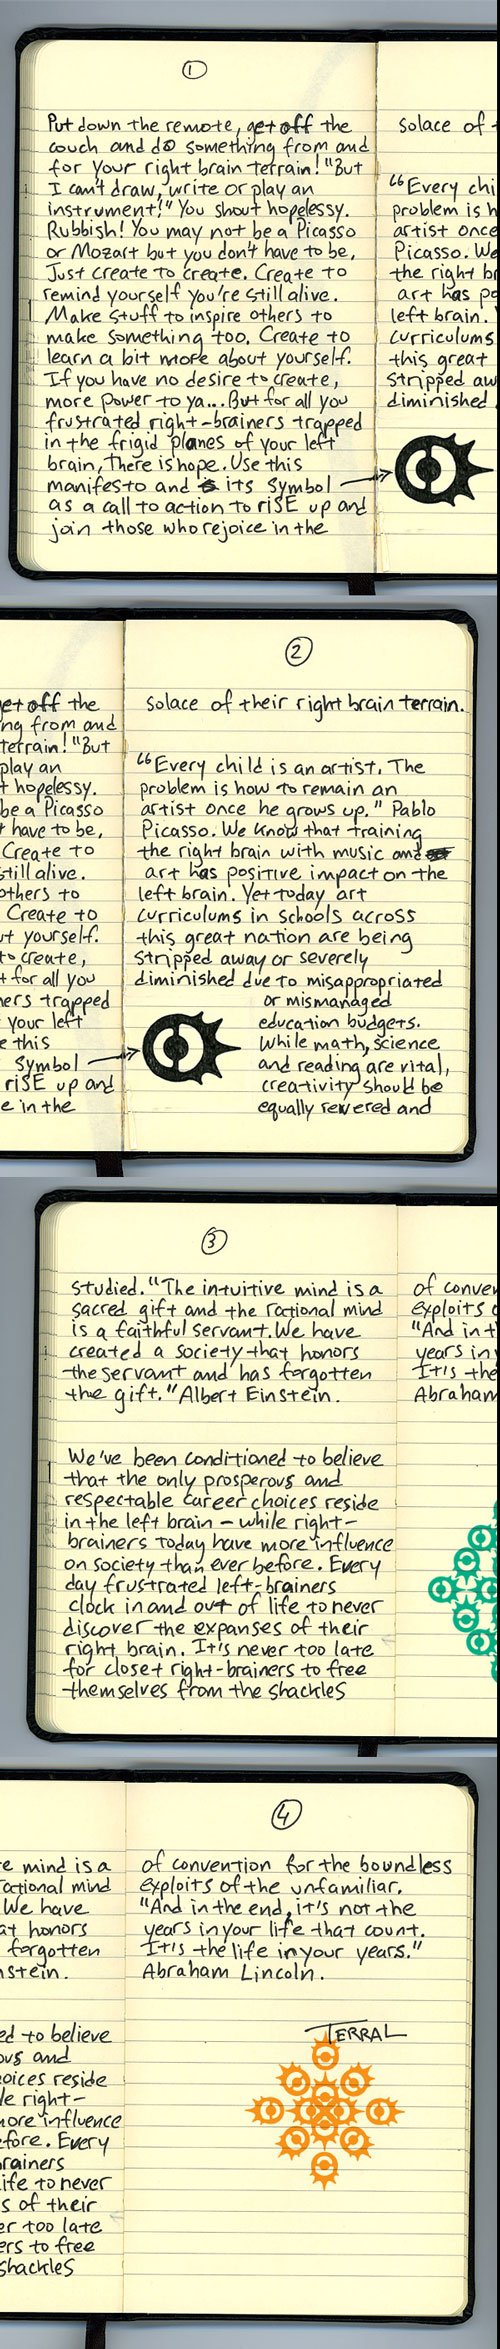 1
Put down the remote, get off the
couch and do something from and
for your right brain terrain! "But
I can't draw, write or play an
instrument!" You shout hopelessy.
Rubbish! You may not be a Picasso
or Mozart but you don't have to be,
Just create to create. Create to
remind yourself you're still alive.
Make stuff to inspire others to
make something too. Create to
learn a bit more about yourself.
If you have no desire to create,
more power to ya... But for all you
frustrated right-brainers trapped
in the frigid planes of your left
brain, there is hope. Use this
manifesto and its symbol
as a call to action to riSE up and
join those who rejoice in the
solace of t
"Every chi
problem is h
artist once
Picasso. We
the right br
art has po
left brain. Y
curriculums
this great
stripped aw
diminished
get off the
ng from and
terrain! "But
play an
t hopelessy.
be a Picasso
t have to be,
Create to
still alive.
others to
Create to
ut yourself.
to create,
t for all you
ners trapped
your left
e this
symbol
riSE up and
e in the
2
solace of their right brain terrain.
"Every child is an artist. The
problem is how to remain an
artist once he grows up." Pablo
Picasso. We know that training
the right brain with music and
art has positive impact on the
left brain. Yet today art
curriculums in schools across
this great nation are being
stripped away or severely
diminished due to misappropriated
or mismanaged
education budgets.
While math, science
and reading are vital,
creativity should be
equally revered and
3
studied. "The intuitive mind is a
sacred gift and the rational mind
is a faithful servant. We have
created a society that honors
the servant and has forgotten
the gift." Albert Einstein.
We've been conditioned to believe
that the only prosperous and
respectable career choices reside
in the left brain – while right-
brainers today have more influence
on society than ever before. Every
day frustrated left-brainers
clock in and out of life to never
discover the expanses of their
right brain. It's never too late
for closet right-brainers to free
themselves from the shackles
of conven
exploits o
"And in t
years in y
It's the
Abraham
e mind is a
rational mind
We have
at honors
forgotten
nstein.
ed to believe
ous and
oices reside
le right-
more influence
efore. Every
rainers
life to never
s of their
er too late
ers to free
shackles
4
of convention for the boundless
exploits of the unfamiliar.
"And in the end, it's not the
years in your life that count.
It's the life in your years."
Abraham Lincoln.
TERRAL